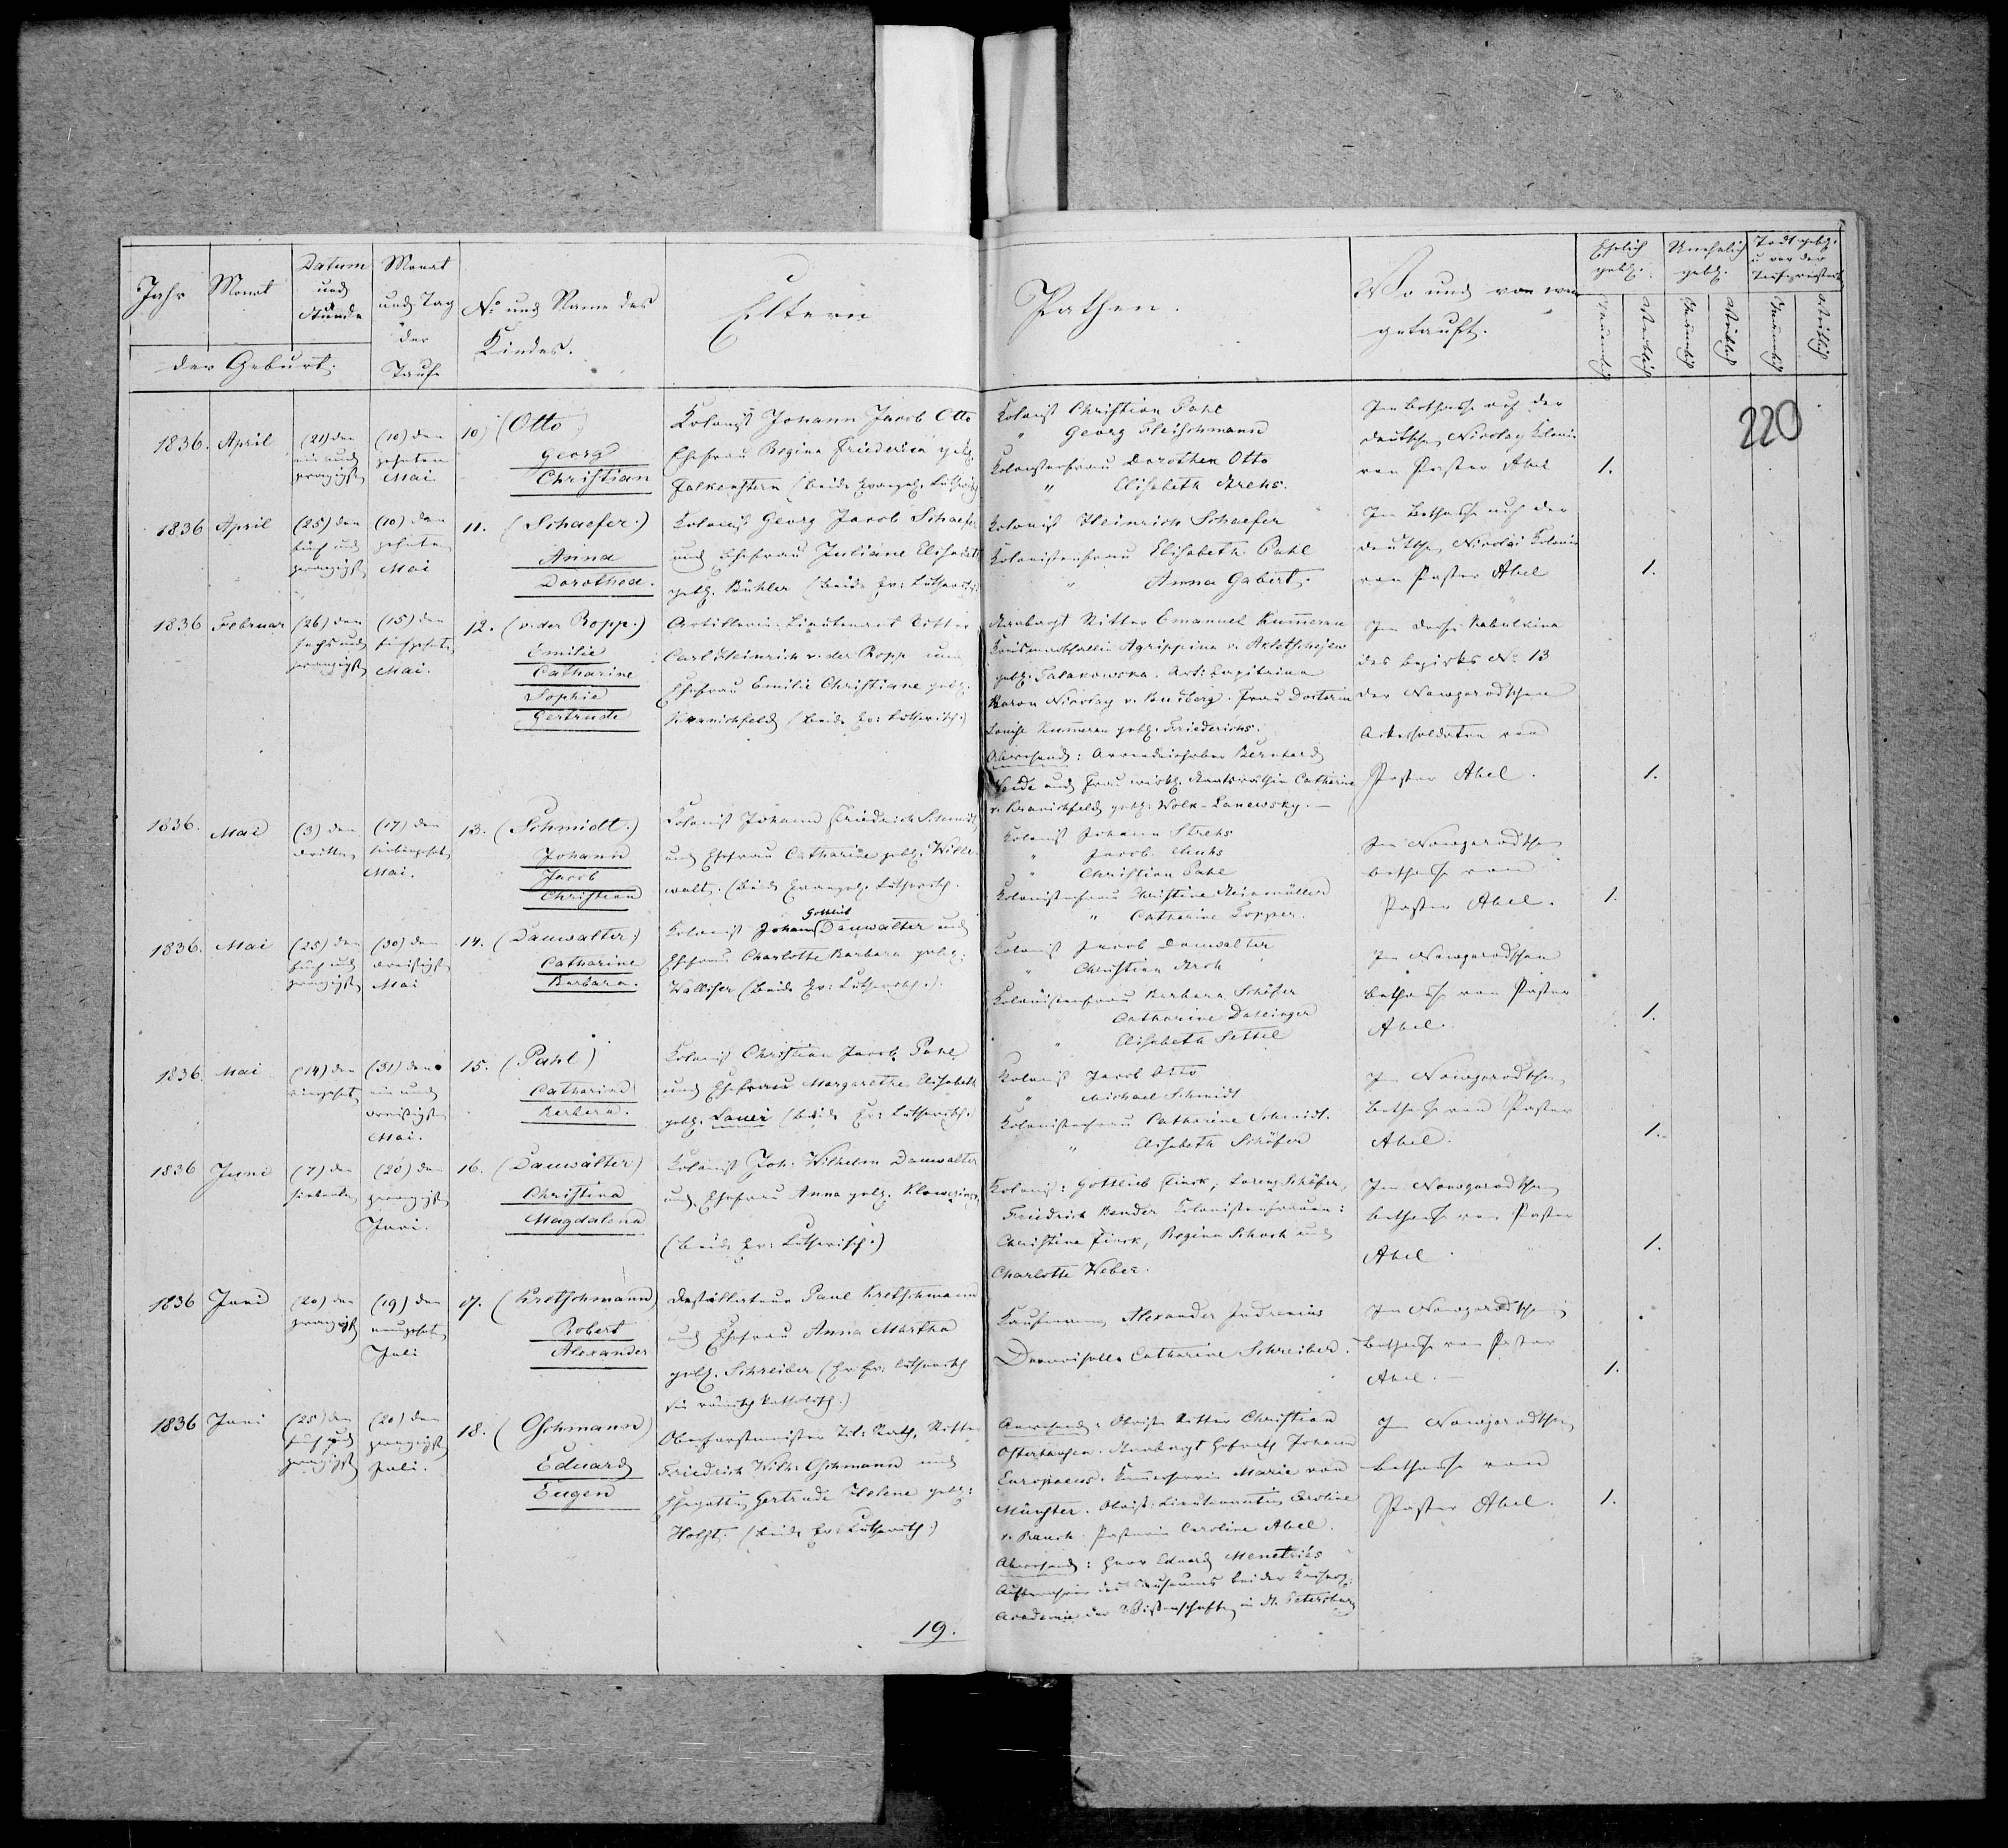 Jahr
Monat
Datum und Stunde
der Geburt.
Monat und Tag der Taufe
No und Name des Kindes.
Eltern
Pathen.
Wo und von wem getauft.
Ehelich gebh.
Unehelich gebh.
Todtgebh. u vor der Taufe verstorb.
Männlich
Weiblich
Männlich
Weiblich
Männlich
Weiblich
220
1836. April
(21) den ein und zwanzigsten
(10) den zehnten Mai
10) (Otto)
Georg
Christian
Kolonist Johann Jacob Otto
Ehefrau Regina Friederica gebh.
Falkenstern (beide Evangel. Lutherisch
Kolonist Christian Pahl
" Georg Fleischmann
Kolonistenfrau Dorothea Otto
" Elisabeth Strehs.
Im Bethause auf der
deutschen Nicolay Kolonie
von Pastor Abel
1.
1836 April
(25) den fünf und zwanzigsten
(10) den zehnten Mai
11. (Schaefer.)
Anna
Dorothea.
Kolonist Georg Jacob Schaefer
und Ehefrau Juliane Elisabeth
gebh. Bühler (beide Ev: Lutherisch.
Kolonist Heinrich Schaefer
Kolonistenfrau Elisabeth Pahl
" Anna Gabert.
Im Bethause auf der
deutschen Nicolai Kolonie
von Pastor Abel
1.
1836 Februar
(26) den sechs und zwanzigsten
(15) den fünfzehnten Mai.
12. (v. der Ropp.)
Emilie
Catharine
Sophie
Gertrude
Artillerie-Lieutenant Ritter
Carl Heinrich v. der Ropp und
Ehefrau Emilie Christiane gebh.
Kranichfeld (beide Ev: Lutherisch.)
Stabsarzt Ritter Emanuel Kummerau
Agrippina v.
gebh. Art: Capitainin
Baron Nicolay v. Budberg. Frau Doctorin
Louise Kummerau gebh. Friederichs.
Abwesend: Bernhard
und Frau wirkl. Staatsräthin Catharine
v. Kranichfeld gebh: Wolk-Lanewsky. —
Im Dorfe
des Bezirks No 13
der Nowgorodschen
Ackersoldaten von
Pastor Abel.
1.
1836. Mai
(3) den dritten
(17) den siebenzehnten Mai.
13. (Schmidt.)
Johann
Jacob
Christian
Kolonist Johann Friedrich Schmidt
und Ehefrau Catharine gebh. Wille-
walt. (beide Evangel. Lutherisch.
Kolonist Johann Strehs
" Jacob
" Christian Pahl
Kolonistenfrau Christine Steinmüller
" Catharine Topper.
Im Nowgorodschen
Bethause von
Pastor Abel.
1.
1836. Mai
(25) den fünf und zwanzigsten
(30) den dreißigsten Mai
14. (Dauwalter)
Catharine
Barbara.
Gottlieb
Kolonist Johann Dauwalter und
Ehefrau Charlotte Barbara gebh.
Walliser (beide Ev: Lutherisch.)
Kolonist Jacob Dauwalter
" Christian
Kolonistenfrau Barbara Schäfer
" Catharine Dallinger
" Elisabeth Settel
Im Nowgorodschen
Bethause von Pastor
Abel.
1.
1836. Mai
(14) den vierzehnten
(31) den ein und dreißigsten Mai.
15. (Pahl)
Catharina
Barbara.
Kolonist Christian Jacob Pahl
und Ehefrau Margaretha Elisabeth
gebh. Lauer (beide Ev: Lutherisch.
Kolonist Jacob Otto
" Michael Schmidt
Kolonistenfrau Catharine Schmidt.
" Elisabeth Schäfer
Im Nowgorodschen
Bethause von Pastor
Abel.
1.
1836 Juni
(7) den siebenten
(20) den zwanzigsten Juni.
16. (Dauwalter)
Christina
Magdalena
Kolonist Joh: Wilhelm Dauwalter
und Ehefrau Anna gebh.
(beide Ev: Lutherisch.)
Kolonist: Gottlieb Finck, Lorenz Schäfer,
Friedrich Bender Kolonistenfrauen:
Christine Finck, Regina Schock und
Charlotte Weber.
Im Nowgorodschen
Bethause von Pastor
Abel
1.
1836 Juni
(20) den zwanzigsten
(19) den neunzehnten Juli
17. (Kretschmann)
Robert
Alexander
Destillateur Paul Kretschmann
und Ehefrau Anna Martha
gebh. Schreiber (Er Ev: Lutherisch
sie römisch katholisch.)
Kaufmann Alexander
Demoiselle Catharine Schreiber.
Im Nowgorodschen
Bethause von Pastor
Abel. —
1.
1836 Juni
(25) den fünf und zwanzigsten
(20) den zwanzigsten Juli.
18. (Oschmann)
Eduard
Eugen
Oberforstmeister Tit: Rath, Ritter
Friedrich Wilh: Oschmann und
Ehegattin Gertrude Helene gebh:
Holst. (beide Ev: Lutherisch.)
Anwesend: Obrist Ritter Christian
Stabsarzt Hofrath Johann
Europaeus. Marie von
Münster. Obrist: Lieutenantin Caroline
v. Rauch. Pastorin Caroline Abel.
Abwesend: Herr Eduard Menetriés
Aufseher des Museums bei der Kaiserl.
Academie der Wissenschaften in St. Petersburg
Im Nowgorodschen
Bethause von
Pastor Abel.
1.
19.